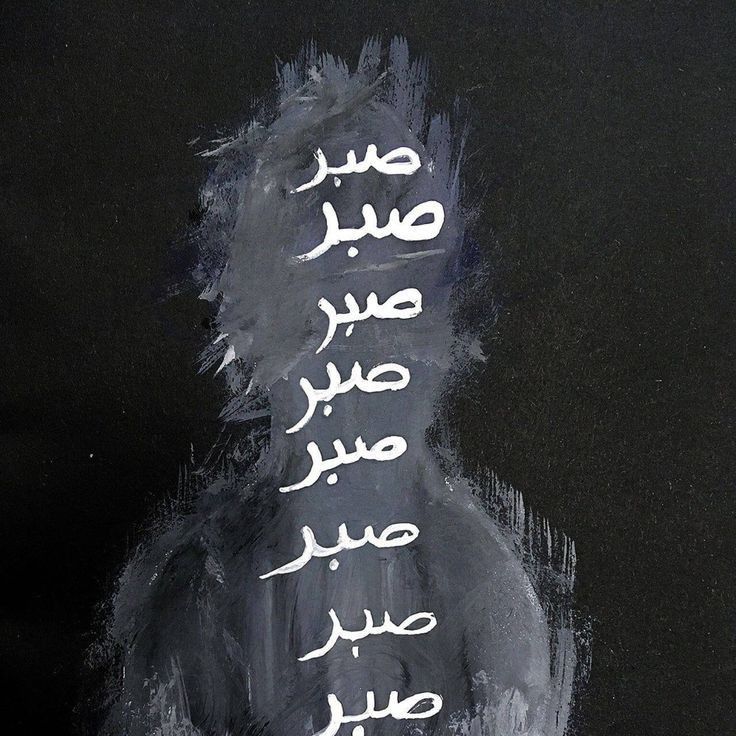 صبر
صبر
صبر
صبر
صبر
صبر
صبر
صبر